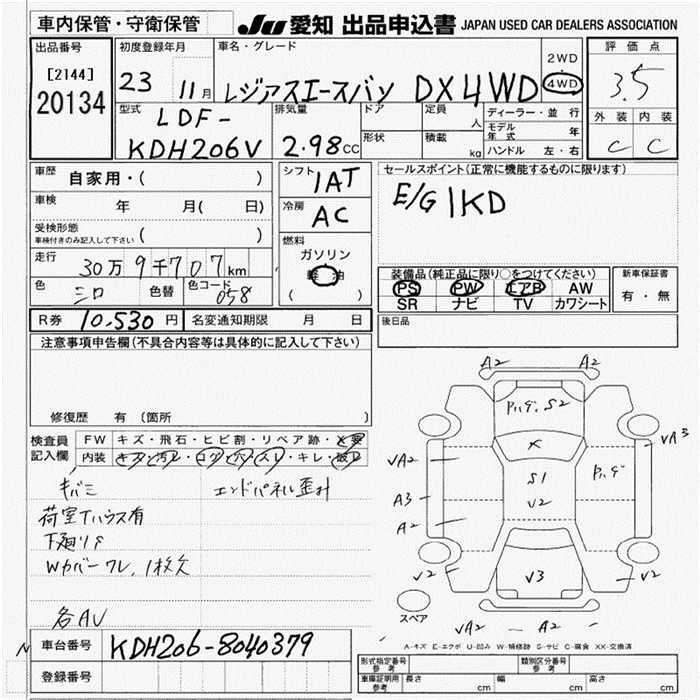 車内保管・守衛保管 JU 愛知 出品申込書 JAPAN USED CAR DEALERS ASSOCIATION
出品番号 初度登録年月 車名・グレード 評価点
[2144] 20134 23 11月 レジアスエースバン DX4WD 2WD 4WD 3.5
型式 LDF- KDH206V 排気量 2.98cc ドア 定員 人 ディーラー・並行
形状 積載 kg モデル年式 年
ハンドル 左・右
外装 内装
C C
車歴 自家用・( )
車検 年 月( 日)
受検形態 ( )
車検付きのみ記入して下さい
走行 30万9千707km
色 シロ 色替 色コード 058
シフト 1AT
冷房 AC
燃料 ガソリン
軽油
( )
セールスポイント(正常に機能するものに限ります)
E/G 1KD
装備品(純正品に限り○をつけてください) 新車保証書
PS PW エアB AW 有・無
SR ナビ TV カワシート
R券 10,530円 名変通知期限 月 日 後日品
注意事項申告欄(不具合内容等は具体的に記入して下さい)
修復歴 有(箇所 )
検査員記入欄 FW キズ・飛石・ヒビ割・リペア跡・X要
内装 キズ・汚レ・コゲ・穴・スレ・キレ・破レ
キバミ エンドパネル歪み
荷室Tハウス有
下廻りS
Wカバーワレ、1枚欠
各AU
A2 A2
S2
X
VA3
VA2
S1
A3
V2
A2
V2 V3 V2
スペア
VA2 A2
A-キズ E-エクボ U-凹み W-補修跡 S-サビ C-腐食 XX-交換済
車台番号 KDH206-8040379
登録番号
形式指定番号 参考 類別区分番号 参考
車庫証明用 参考 長さ cm 幅 cm 高さ cm